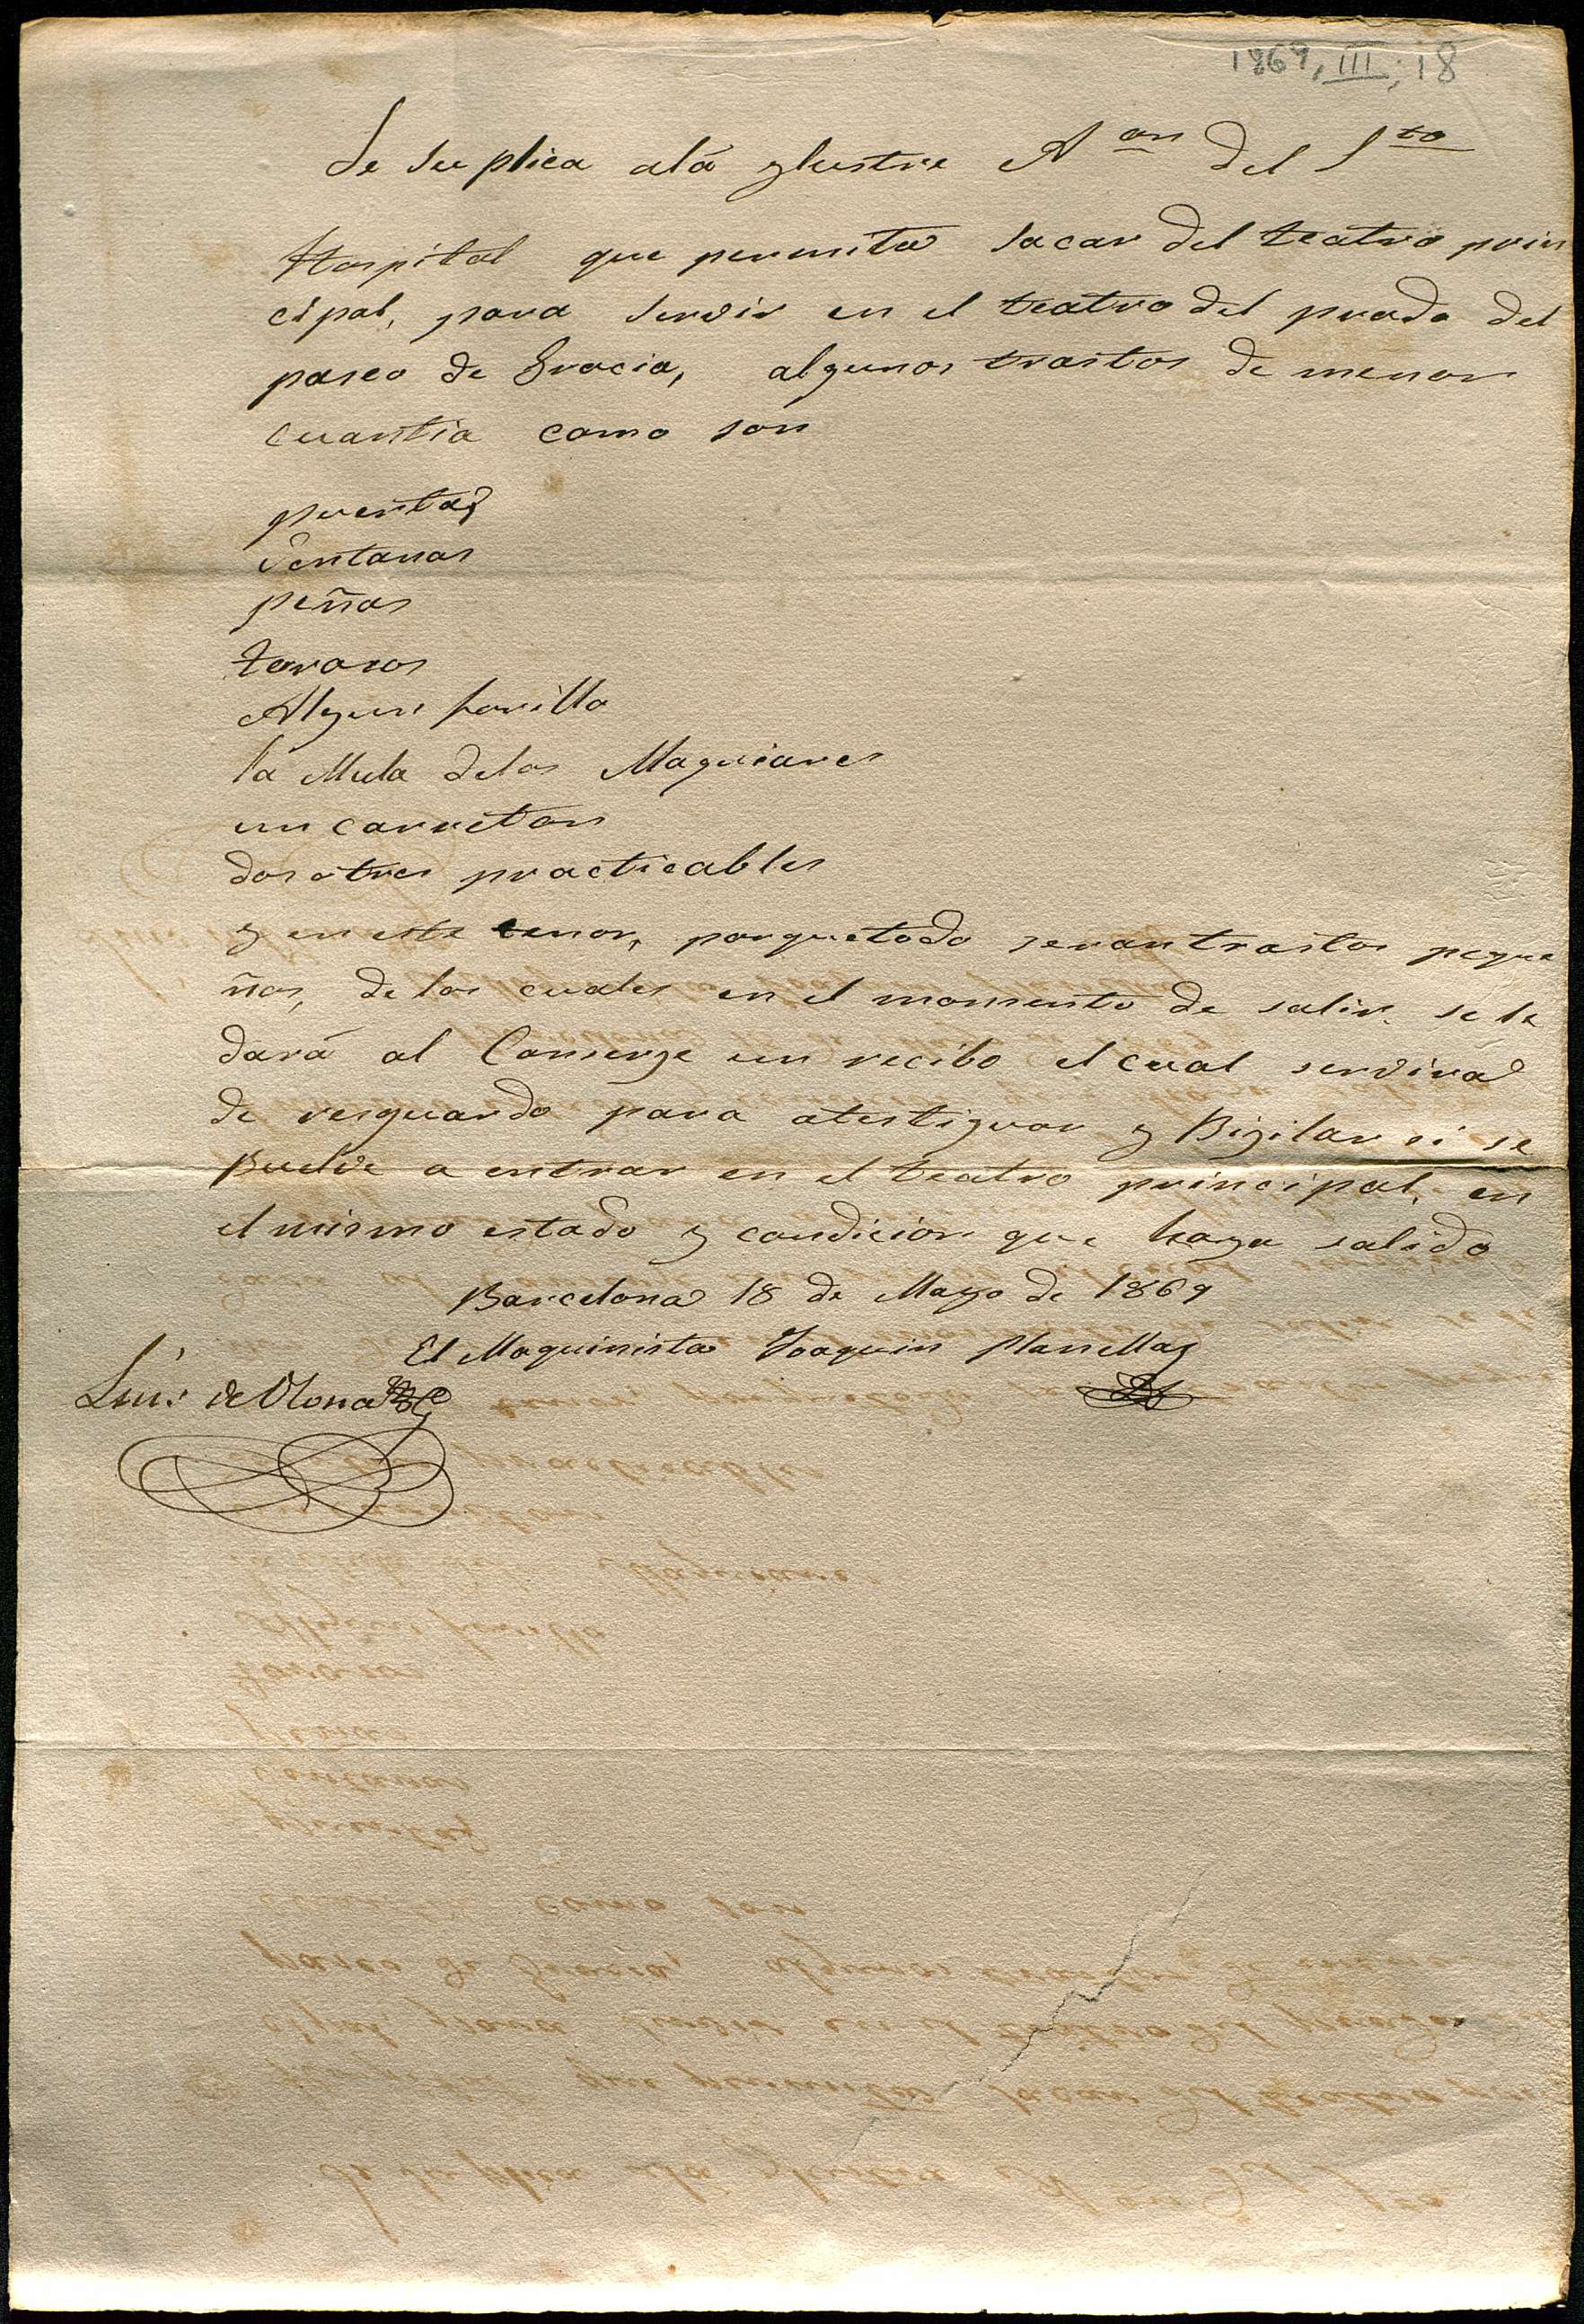 1869, III, 18
Se suplica ala ylustre A.on del S.to
Hospital que permita sacar del teatro prin
cipal, para servir en el teatro del prado del
paseo de Gracia, algunos trastos de menor
cuantia como son
puertas
Ventanas
peñas
Algun
la Mula de los Maguiares
un carreton
dos o tres practicables
y en este tenor, porque todo seran trastos peque
ños, de los cuales en el momento de salir se le
dará al Conserge un recibo el cual servira
de resguardo para atestiguar y Bigilar si se
Buelve a entrar en el teatro principal, en
el mismo estado y condicion que haya salido
Barcelona 18 de Mayo de 1869
El Maquinista Joaquin Planellas
Luis de Olona